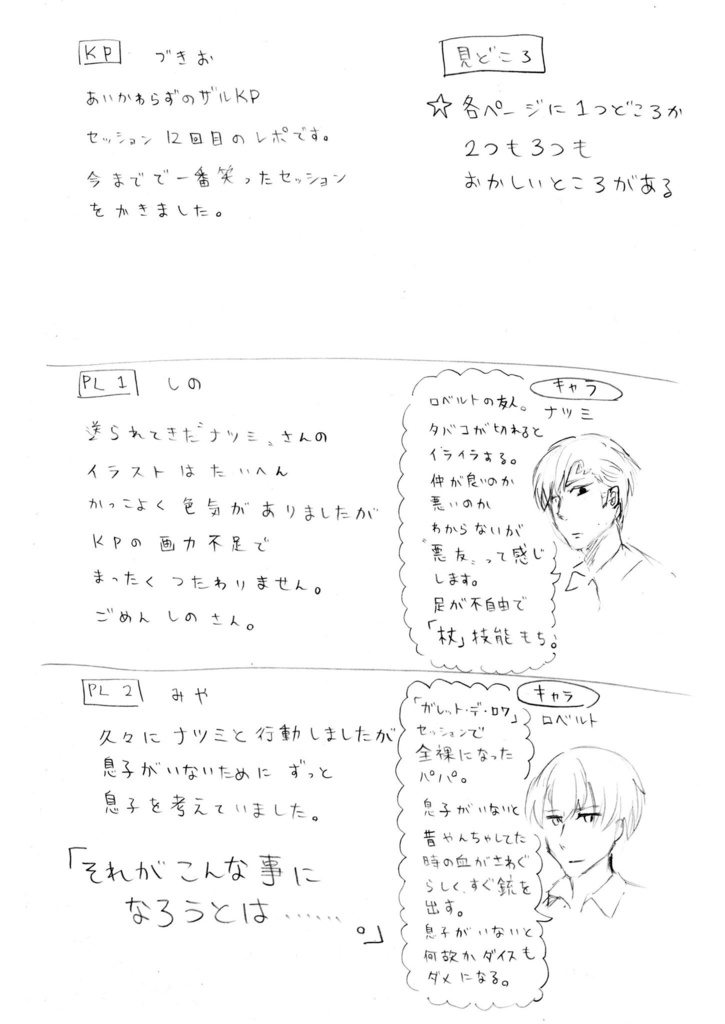 KP づきお
あいかわらずのザルKP
セッション12回目のレポです。
今までで一番笑ったセッション
をかきました。
見どころ
☆ 各ページに1つどころか
2つも3つも
おかしいところがある
PL 1 しの
送られてきた"ナツミ"さんの
イラストはたいへん
かっこよく色気がありましたが
KPの画力不足で
まったくつたわりません。
ごめんしのさん。
キャラ
ナツミ
ロベルトの友人。
タバコが切れると
イライラする。
仲が良いのか
悪いのか
わからないが
"悪友"って感じ
します。
足が不自由で
「杖」技能もち。
PL 2 みや
久々にナツミと行動しましたが
息子がいないためにずっと
息子を考えていました。
「それがこんな事に
なろうとは……。」
キャラ
ロベルト
「ガレット・デ・ロワ」
セッションで
全裸になった
パパ。
息子がいないと
昔やんちゃしてた
時の血がさわぐ
らしく、すぐ銃を
出す。
息子がいないと
何故かダイスも
ダメになる。